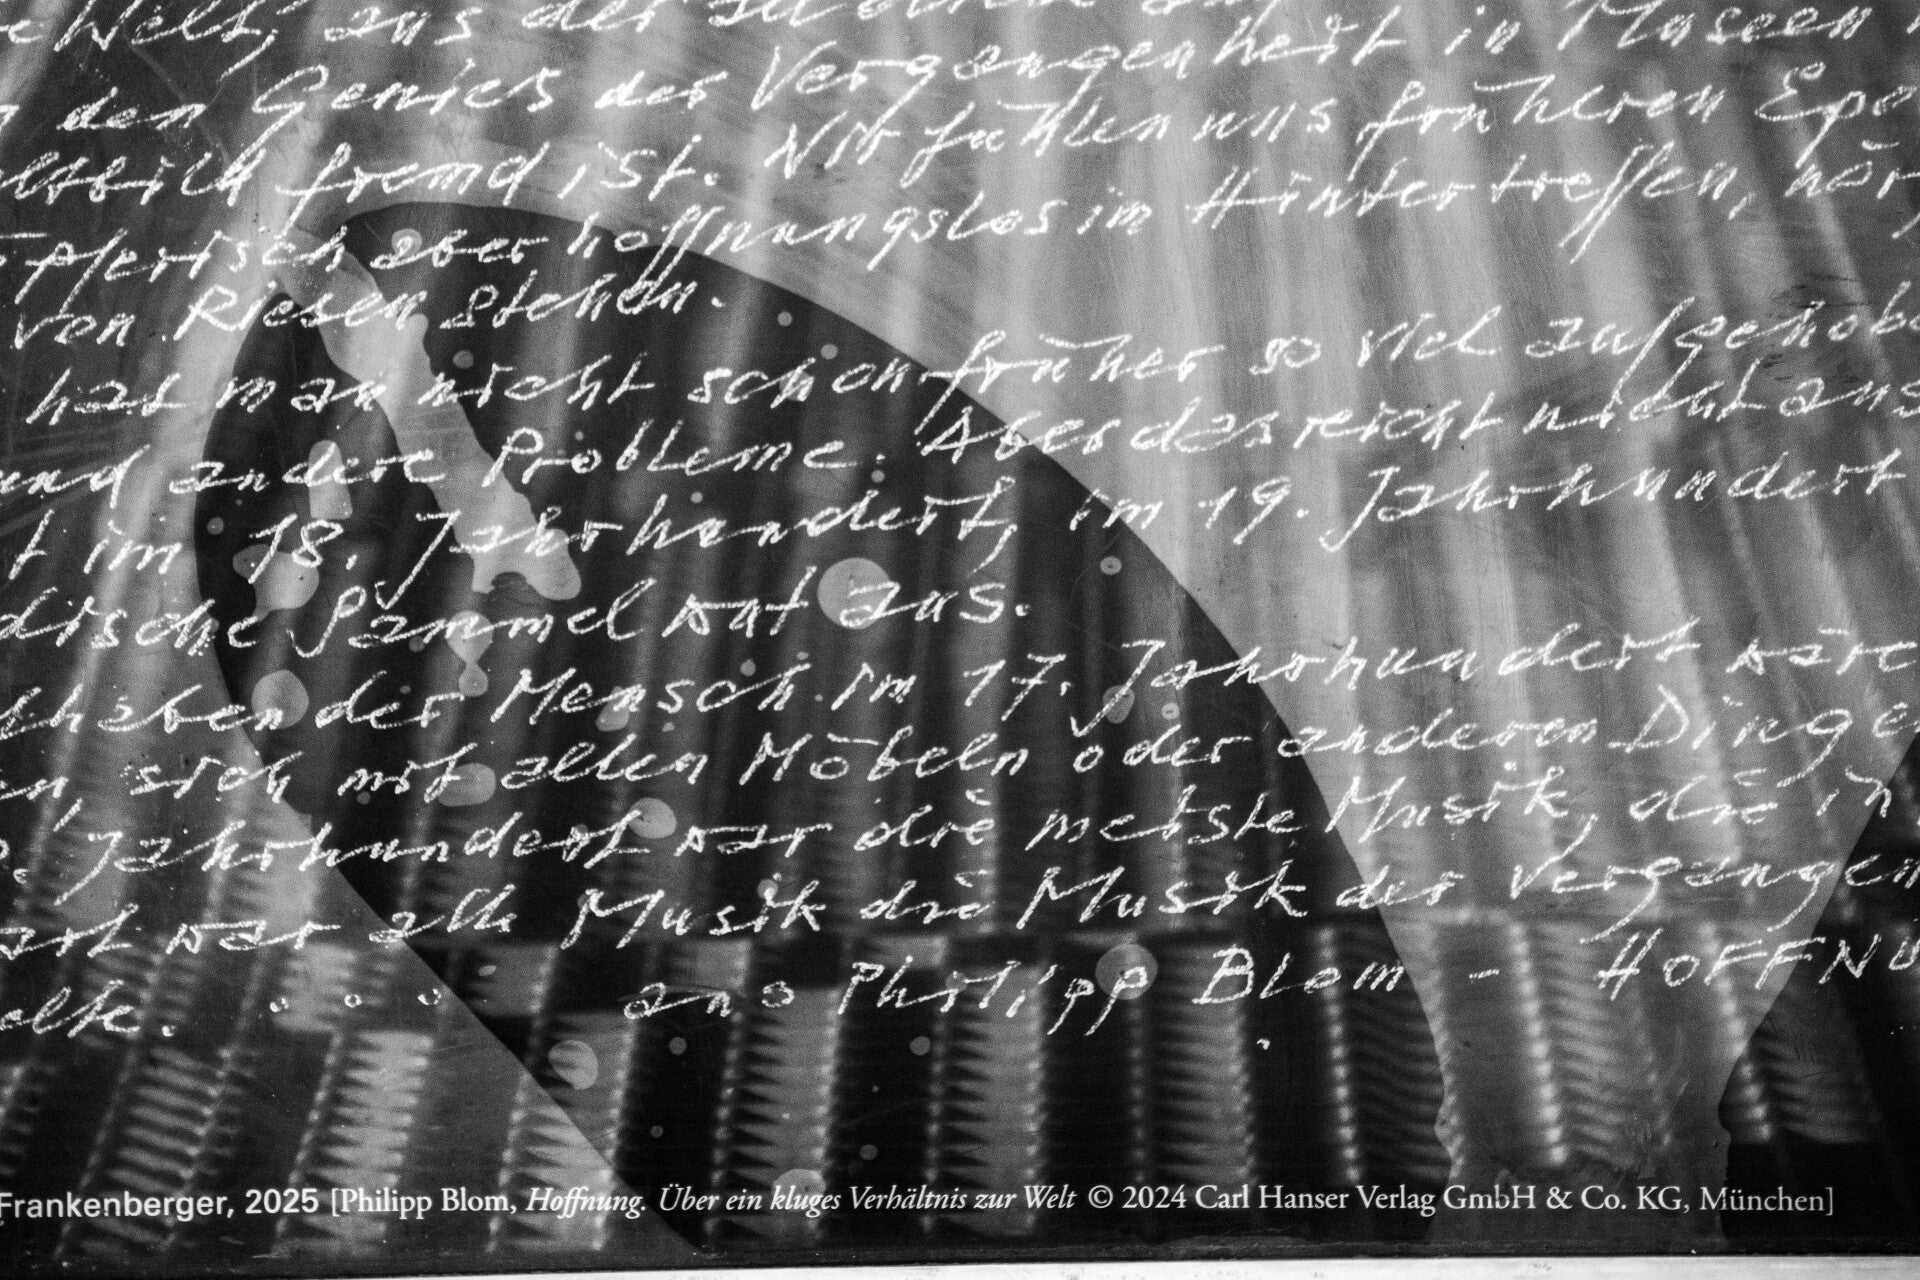 Welt, aus der
Genies der Vergangenheit in Museen
fremd ist. Wir fühlen uns früheren Epo
aber hoffnungslos im Hintertreffen, hör
von Riesen stehen.
hat man nicht schon früher so viel aufgehobe
und andere Probleme. Aber das reicht nicht aus
t im 18. Jahrhundert, im 19. Jahrhundert
dische Sammelwut aus.
der Mensch im 17. Jahrhundert wäre
sich mit alten Möbeln oder anderen Dinge
Jahrhundert war die meiste Musik, die in
war alle Musik die Musik der Vergangen
Philipp Blom - HOFFNU
Frankenberger, 2025 [Philipp Blom, Hoffnung. Über ein kluges Verhältnis zur Welt © 2024 Carl Hanser Verlag GmbH & Co. KG, München]